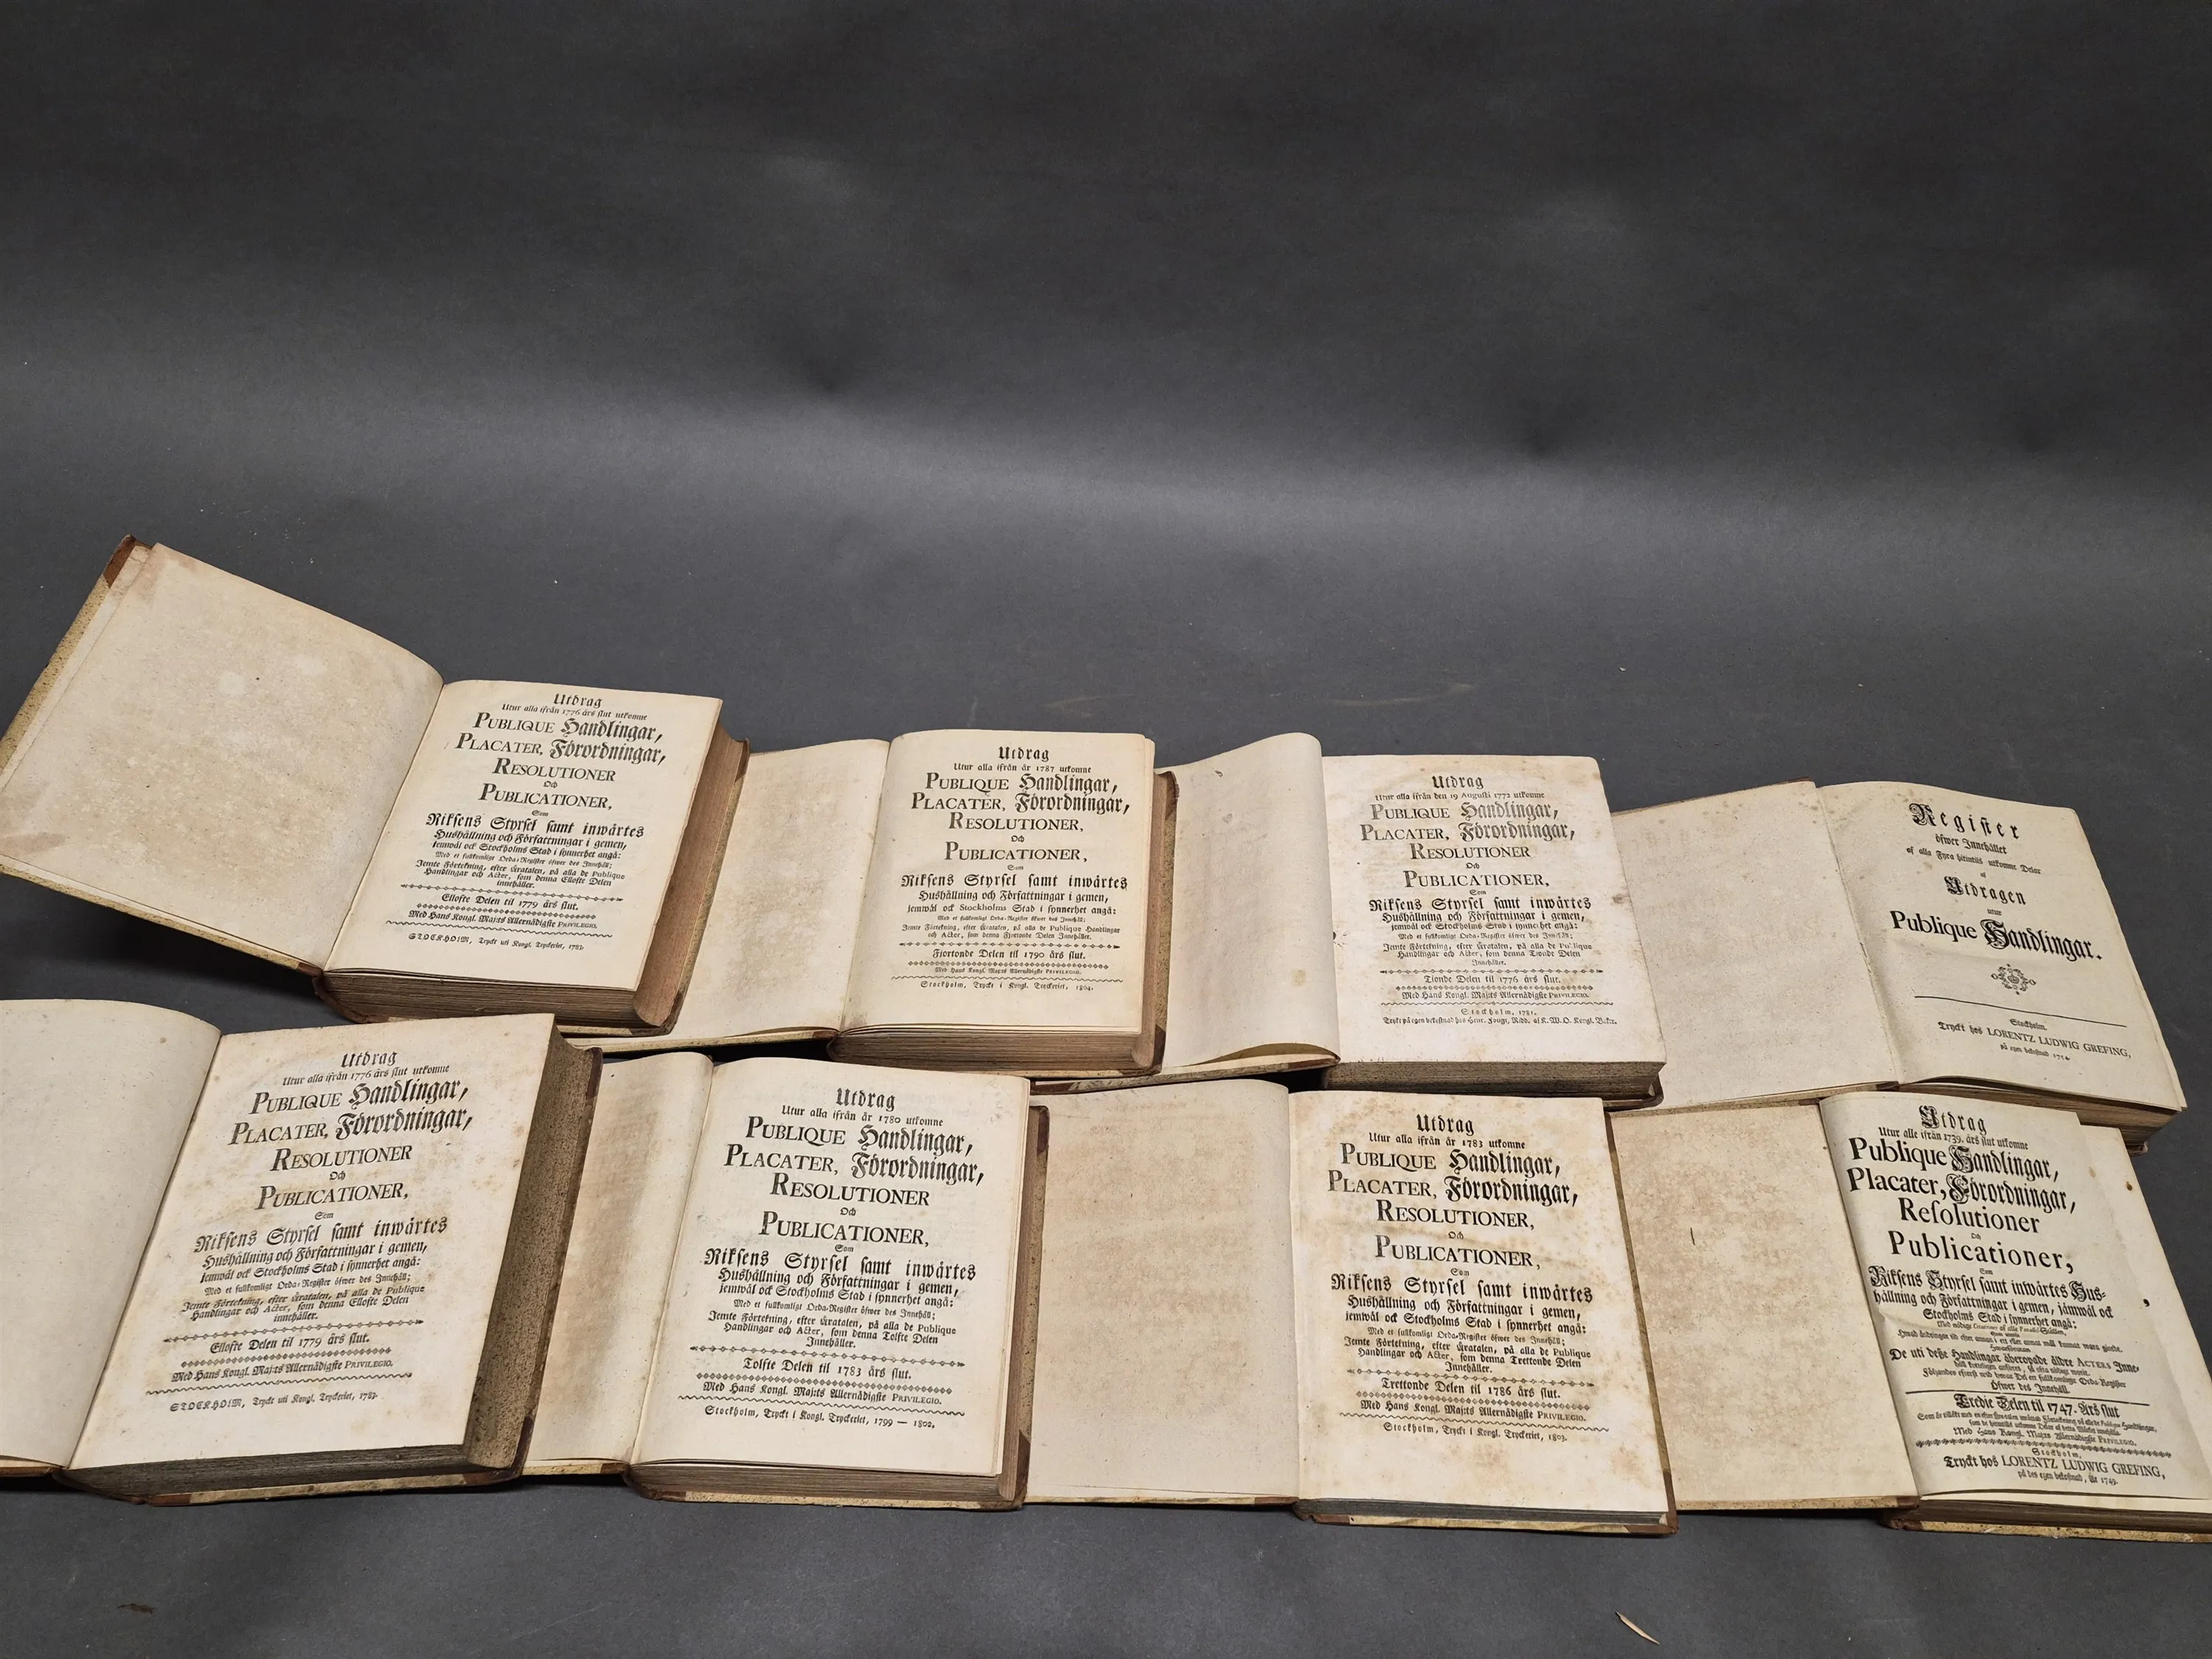 Utdrag
Utur alla ifrån 1776 års slut utkomne
PUBLIQUE Handlingar,
PLACATER, Förordningar,
RESOLUTIONER
Och
PUBLICATIONER,
Som
Riksens Styrsel samt inwärtes
Hushållning och Författningar i gemen,
jemwäl ock Stockholms Stad i synnerhet angå:
Med et fullkomligt Orda-Register öfwer des Innehåll;
Jemte Förtekning, efter Åratalen, på alla de Publique
Handlingar och Acter, som denna Ellofte Delen
innehåller.
Ellofte Delen til 1779 års slut.
Med Hans Kongl. Maj:ts Allernådigste PRIVILEGIO.
STOCKHOLM, Tryckt uti Kongl. Tryckeriet, 1783.
Utdrag
Utur alla ifrån år 1787 utkomne
PUBLIQUE Handlingar,
PLACATER, Förordningar,
RESOLUTIONER,
Och
PUBLICATIONER,
Som
Riksens Styrsel samt inwärtes
Hushållning och Författningar i gemen,
jemwäl ock Stockholms Stad i synnerhet angå:
Med et fullkomligt Orda-Register öfwer des Innehåll;
Jemte Förtekning, efter Åratalen, på alla de Publique Handlingar
och Acter, som denna Fjortonde Delen Innehåller.
Fjortonde Delen til 1790 års slut.
Med Hans Kongl. Maj:ts Allernådigste PRIVILEGIO.
Stockholm, Tryckt i Kongl. Tryckeriet, 1804.
Utdrag
Utur alla ifrån den 19 Augusti 1772 utkomne
PUBLIQUE Handlingar,
PLACATER, Förordningar,
RESOLUTIONER
Och
PUBLICATIONER,
Som
Riksens Styrsel samt inwärtes
Hushållning och Författningar i gemen,
jemwäl ock Stockholms Stad i synnerhet angå:
Med et fullkomligt Orda-Register öfwer des Innehåll;
Jemte Förtekning, efter Åratalen, på alla de Publique
Handlingar och Acter, som denna Tionde Delen
Innehåller.
Tionde Delen til 1776 års slut.
Med Hans Kongl. Maj:ts Allernådigste PRIVILEGIO.
Stockholm, 1781.
Tryckt på egen bekostnad hos Henr. Fougt, Ridd. af K. W. O. Kongl. Boktr.
Register
öfwer Innehållet
af alla Fyra hitintils utkomne Delar
af
Utdragen
utur
Publique Handlingar.
Stockholm,
Tryckt hos LORENTZ LUDWIG GREFING,
på egen bekostnad
Utdrag
Utur alla ifrån 1776 års slut utkomne
PUBLIQUE Handlingar,
PLACATER, Förordningar,
RESOLUTIONER
Och
PUBLICATIONER,
Som
Riksens Styrsel samt inwärtes
Hushållning och Författningar i gemen,
jemwäl ock Stockholms Stad i synnerhet angå:
Med et fullkomligt Orda-Register öfwer des Innehåll;
Jemte Förtekning, efter Åratalen, på alla de Publique
Handlingar och Acter, som denna Ellofte Delen
innehåller.
Ellofte Delen til 1779 års slut.
Med Hans Kongl. Maj:ts Allernådigste PRIVILEGIO.
STOCKHOLM, Tryckt uti Kongl. Tryckeriet, 1783.
Utdrag
Utur alla ifrån år 1780 utkomne
PUBLIQUE Handlingar,
PLACATER, Förordningar,
RESOLUTIONER
Och
PUBLICATIONER,
Som
Riksens Styrsel samt inwärtes
Hushållning och Författningar i gemen,
jemwäl ock Stockholms Stad i synnerhet angå:
Med et fullkomligt Orda-Register öfwer des Innehåll;
Jemte Förtekning, efter Åratalen, på alla de Publique
Handlingar och Acter, som denna Tolfte Delen
Innehåller.
Tolfte Delen til 1783 års slut.
Med Hans Kongl. Maj:ts Allernådigste PRIVILEGIO.
Stockholm, Tryckt i Kongl. Tryckeriet, 1799 — 1802.
Utdrag
Utur alla ifrån år 1783 utkomne
PUBLIQUE Handlingar,
PLACATER, Förordningar,
RESOLUTIONER,
Och
PUBLICATIONER,
Som
Riksens Styrsel samt inwärtes
Hushållning och Författningar i gemen,
jemwäl ock Stockholms Stad i synnerhet angå:
Med et fullkomligt Orda-Register öfwer des Innehåll;
Jemte Förtekning, efter Åratalen, på alla de Publique
Handlingar och Acter, som denna Trettonde Delen
Innehåller.
Trettonde Delen til 1786 års slut.
Med Hans Kongl. Maj:ts Allernådigste PRIVILEGIO.
Stockholm, Tryckt i Kongl. Tryckeriet, 1803.
Utdrag
Utur alle ifrån 1739. års slut utkomne
Publique Handlingar,
Placater, Förordningar,
Resolutioner
Och
Publicationer,
Som
Riksens Styrsel samt inwärtes Hus-
hållning och Författningar i gemen, jämwäl ock
Stockholms Stad i synnerhet angå:
De uti deße Handlingar åberopade äldre ACTERS Inne-
Öfwer des Innehåll.
Tredie Delen til 1747. Års slut
Med Hans Kongl. Maj:ts Allernådigste PRIVILEGIO.
Stockholm,
Tryckt hos LORENTZ LUDWIG GREFING,
på des egen bekostnad, åhr 1749.